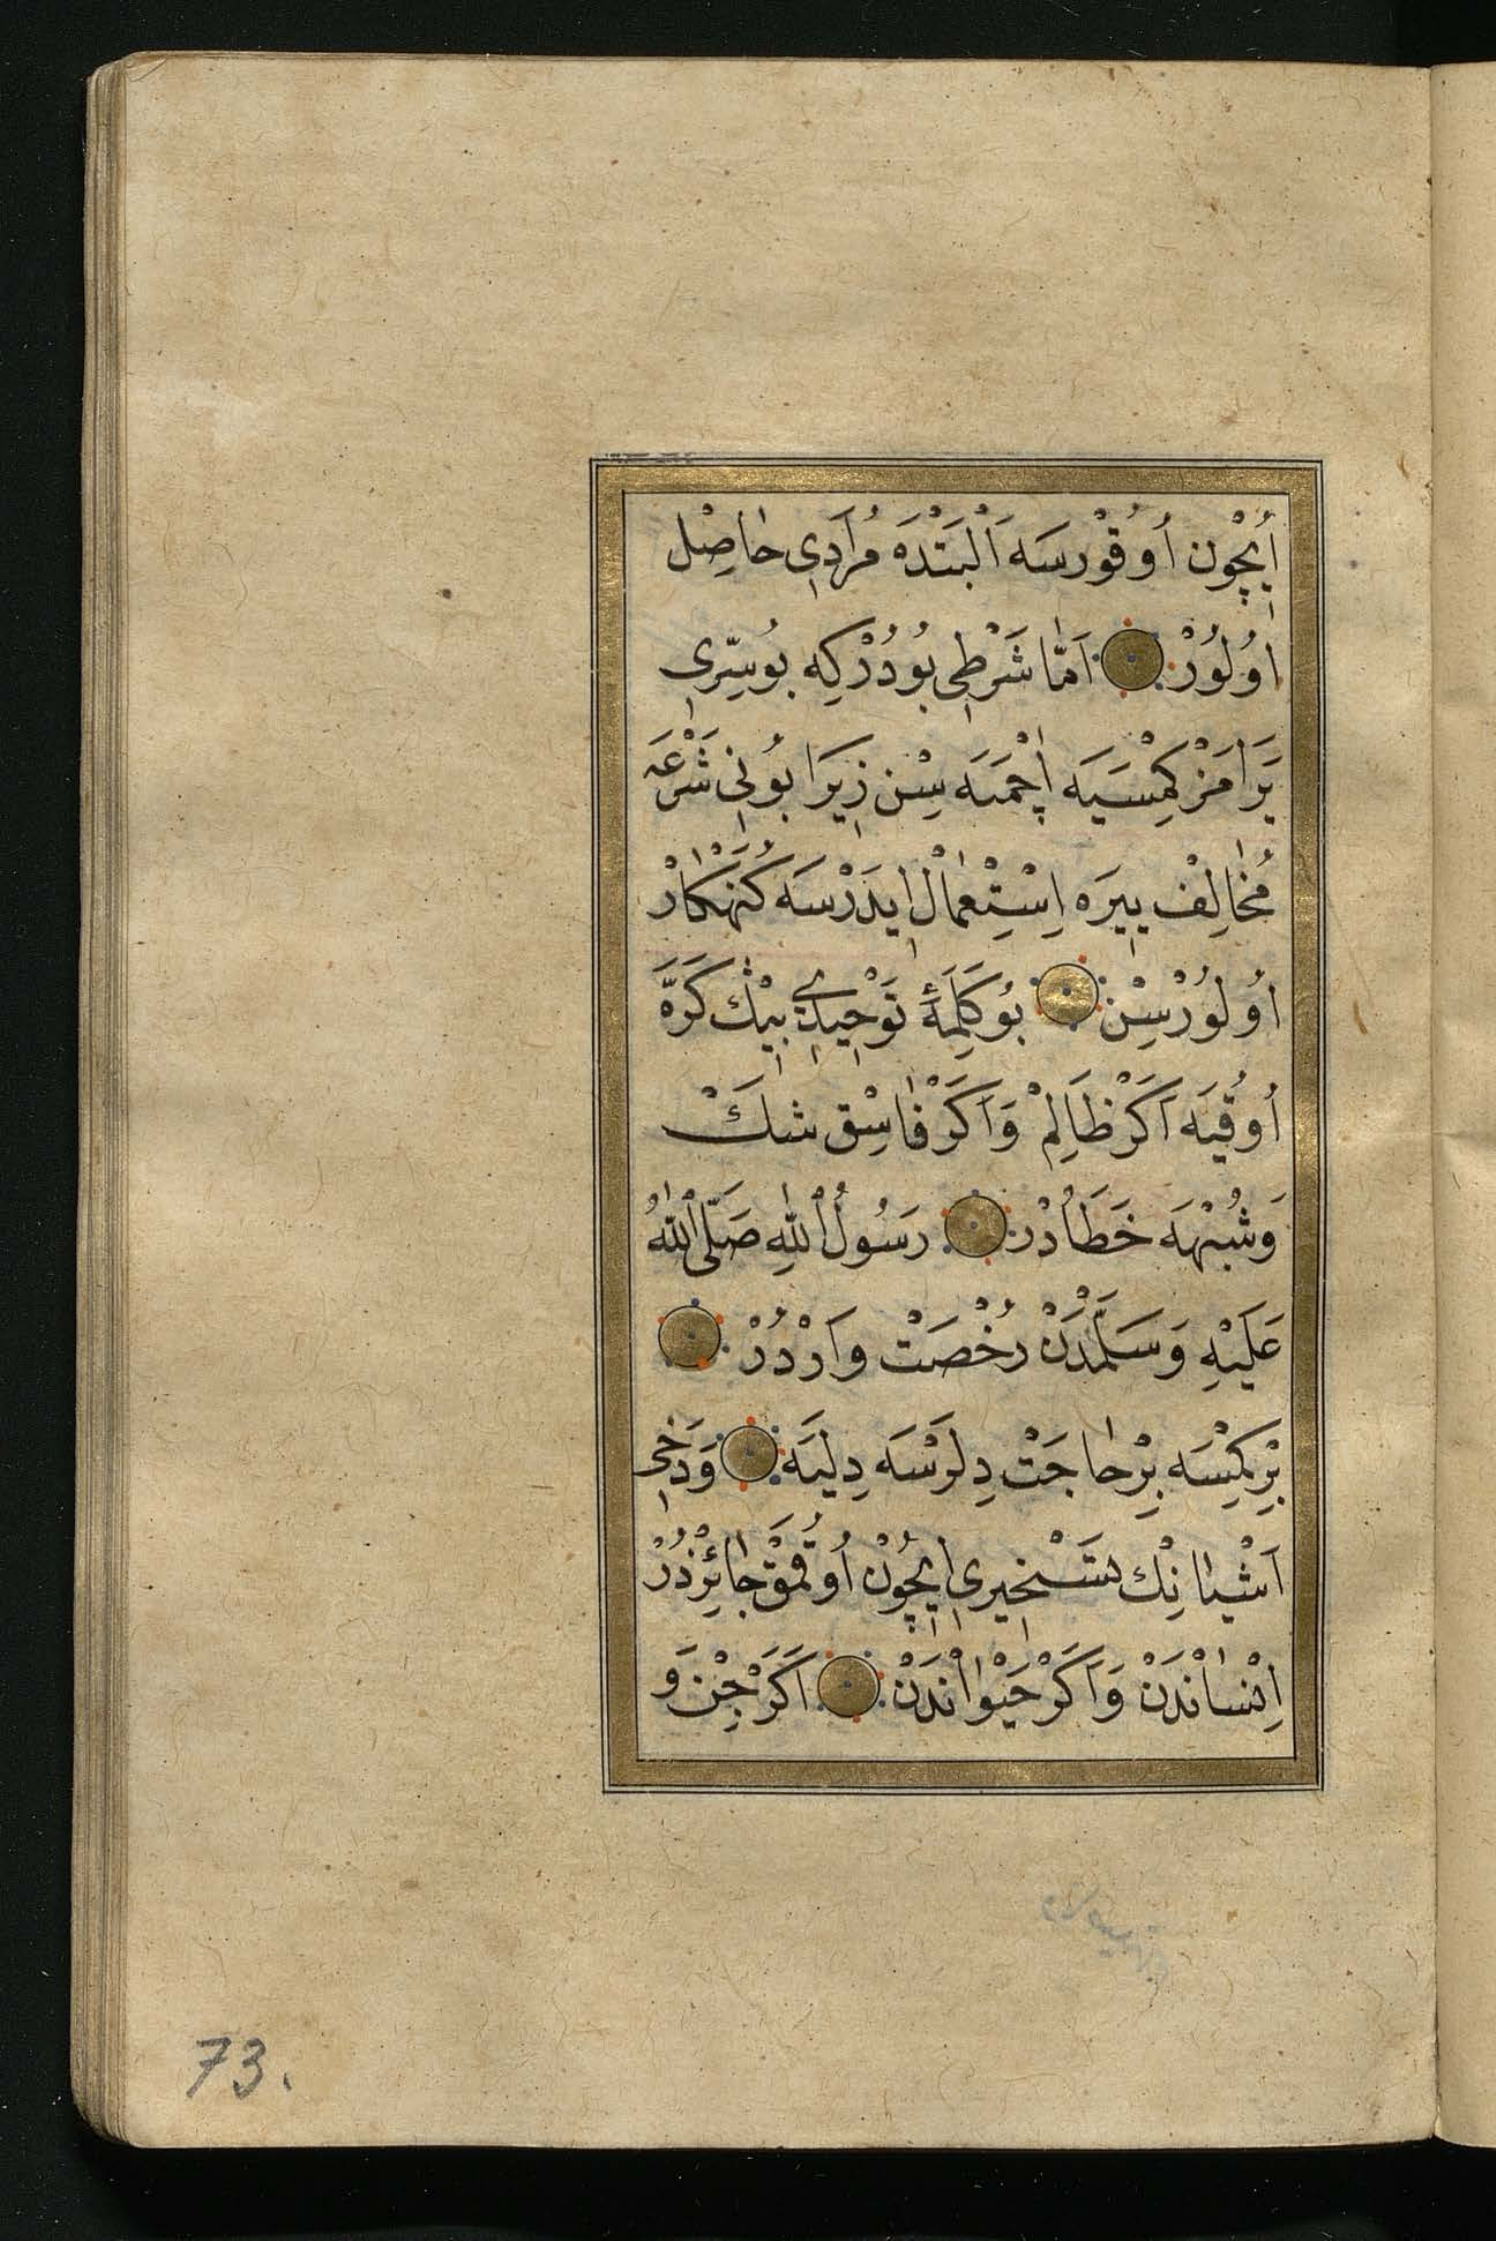 اُیچُون اُوقُورسَه اَلْبَتْدَه مُرادِی حاصِل
اوُلُورْ اَمَّا شَرْطِی بُودُرْكِه بُوسِرِّی
یَرامَزْ كِمْسَیَه اچْمَیَه سِنْ زِیرَا بُونِی شَرْعَه
مُخالِفْ یِیرَه اِسْتِعْمالْ ایدَرْسَه كُنَهْكارْ
اوُلُورْسِنْ بُو كَلِمَۀ تَوْحِیدِی بِیْك كَرَّه
اُوقُیَه اَكَرْ ظَالِمْ وَاَكَرْ فاسِقْ شَكْ
وَشُبْهَه خَطَادُرْ رَسُولُ اللهِ صَلَّی اللهُ
عَلَیْهِ وَسَلَّمْدَنْ رُخْصَتْ وَارْدُرْ
بِرْ كِمْسَه بِرْ حاجَتْ دِلَرْسَه دِلیَه وَدَخِی
اَشْیانِكْ تَسْخِیرِی ایچُونْ اُوقُمَقْ جائِزْدُرْ
اِنْسانْدَنْ وَاَكَرْ حَیْوانْدَنْ اَكَرْ جِنْ وَ
73.